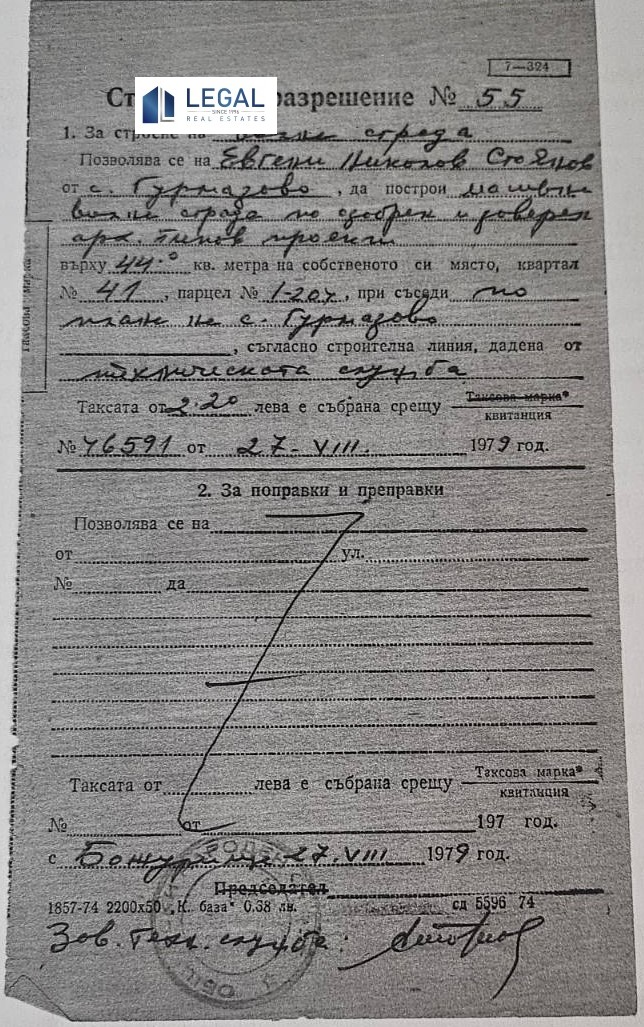 7—324
LEGAL
SINCE 1996
REAL ESTATES
Ст разрешение № 55
1. За строеж на сграда
Позволява се на Евгени Николов Стоянов
от с. Гурмазово, да построи масивна
сграда по одобрен и заверен
арх. типов проект
върху 44.0 кв. метра на собственото си място, квартал
№ 41, парцел № I-207, при съседи по
план на с. Гурмазово
, съгласно строителна линия, дадена от
техническата служба
Таксата от 2.20 лева е събрана срещу Таксова марка*
квитанция
№ 46591 от 27. VIII. 1979 год.
2. За поправки и преправки
Позволява се на
от ул.
№ да
Таксата от лева е събрана срещу Таксова марка*
квитанция
№ от 197 год.
с Божурище 27. VIII 1979 год.
Председател
1857-74 2200х50 „К. база“ 0.38 лв. сд 5596 74
Зав. техн. служба: